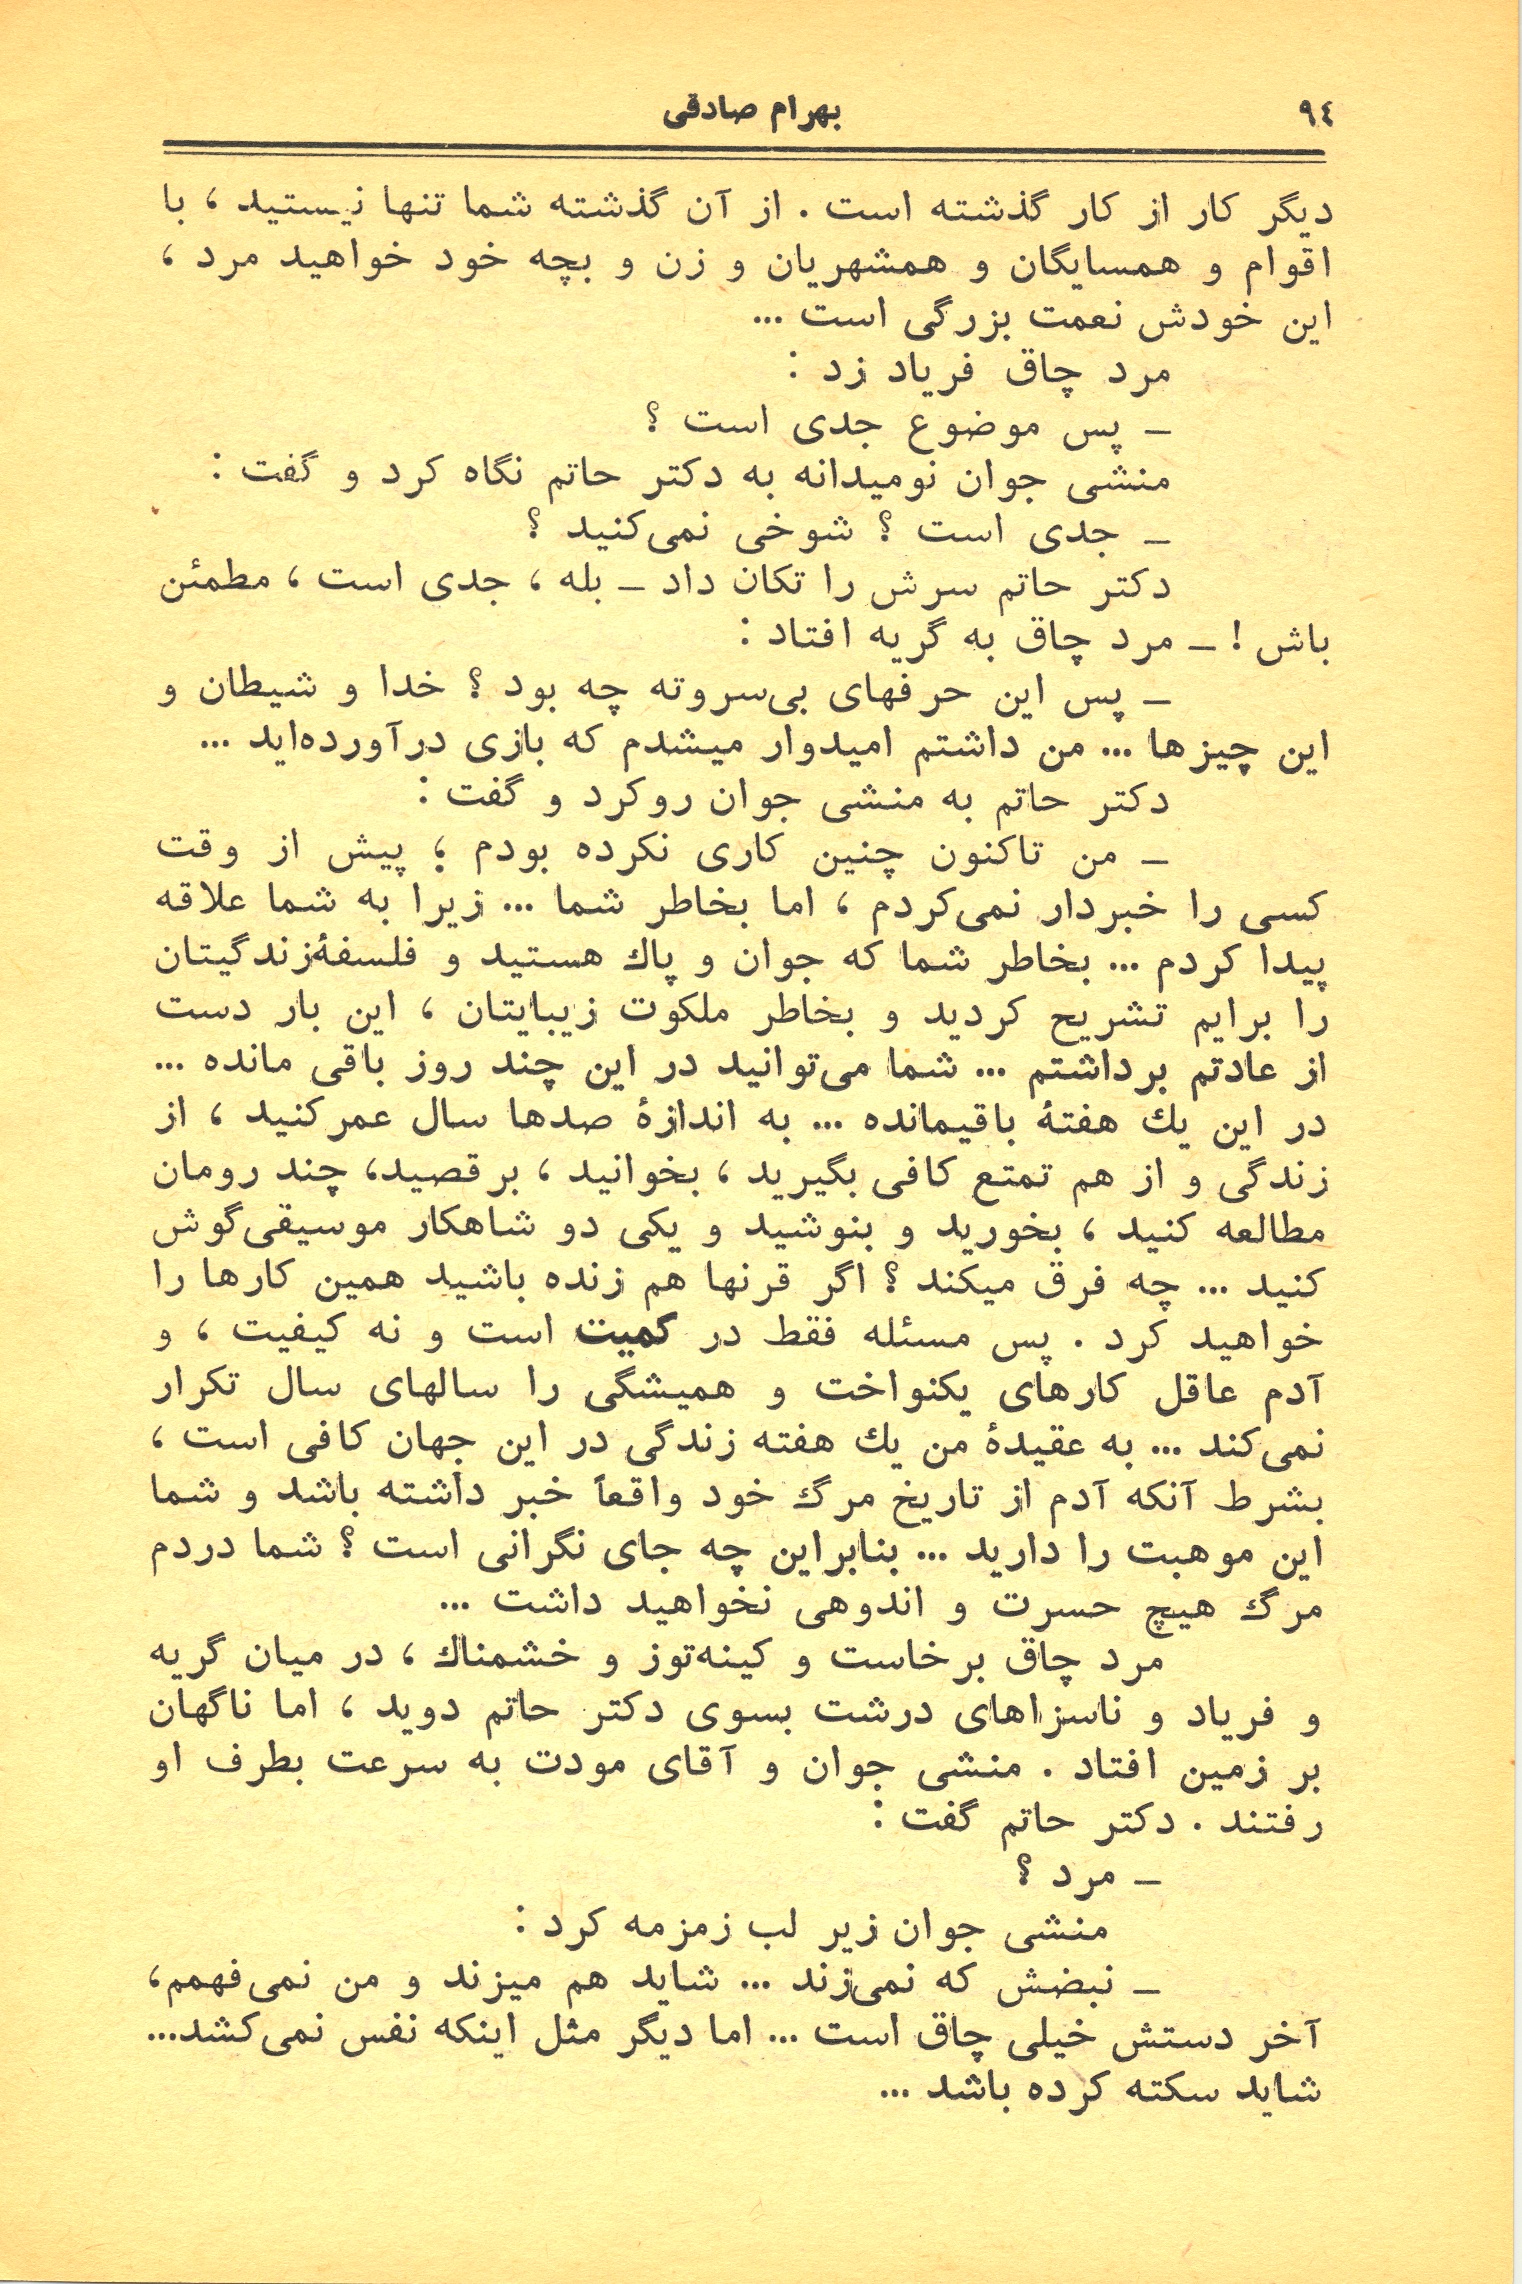 ۹٤
بهرام صادقی
دیگر کار از کار گذشته است . از آن گذشته شما تنها نیستید ، با
اقوام و همسایگان و همشهریان و زن و بچه خود خواهید مرد ،
این خودش نعمت بزرگی است ...
مرد چاق فریاد زد :
ـ پس موضوع جدی است ؟
منشی جوان نومیدانه به دکتر حاتم نگاه کرد و گفت :
ـ جدی است ؟ شوخی نمی‌کنید ؟
دکتر حاتم سرش را تکان داد ـ بله ، جدی است ، مطمئن
باش ! ـ مرد چاق به گریه افتاد :
ـ پس این حرفهای بی‌سروته چه بود ؟ خدا و شیطان و
این چیزها ... من داشتم امیدوار میشدم که بازی درآورده‌اید ...
دکتر حاتم به منشی جوان روکرد و گفت :
ـ من تاکنون چنین کاری نکرده بودم ؛ پیش از وقت
کسی را خبردار نمی‌کردم ، اما بخاطر شما ... زیرا به شما علاقه
پیدا کردم ... بخاطر شما که جوان و پاك هستید و فلسفهٔ‌زندگیتان
را برایم تشریح کردید و بخاطر ملکوت زیبایتان ، این بار دست
از عادتم برداشتم ... شما می‌توانید در این چند روز باقی مانده ...
در این یك هفتهٔ باقیمانده ... به اندازهٔ صدها سال عمرکنید ، از
زندگی و از هم تمتع کافی بگیرید ، بخوانید ، برقصید، چند رومان
مطالعه کنید ، بخورید و بنوشید و یکی دو شاهکار موسیقی‌گوش
کنید ... چه فرق میکند ؟ اگر قرنها هم زنده باشید همین کارها را
خواهید کرد . پس مسئله فقط در کمیت است و نه کیفیت ، و
آدم عاقل کارهای یکنواخت و همیشگی را سالهای سال تکرار
نمی‌کند ... به عقیدهٔ من یك هفته زندگی در این جهان کافی است ،
بشرط آنکه آدم از تاریخ مرگ خود واقعاً خبر داشته باشد و شما
این موهبت را دارید ... بنابراین چه جای نگرانی است ؟ شما دردم
مرگ هیچ حسرت و اندوهی نخواهید داشت ...
مرد چاق برخاست و کینه‌توز و خشمناك ، در میان گریه
و فریاد و ناسزاهای درشت بسوی دکتر حاتم دوید ، اما ناگهان
بر زمین افتاد . منشی جوان و آقای مودت به سرعت بطرف او
رفتند . دکتر حاتم گفت :
ـ مرد ؟
منشی جوان زیر لب زمزمه کرد :
ـ نبضش که نمی‌زند ... شاید هم میزند و من نمی‌فهمم،
آخر دستش خیلی چاق است ... اما دیگر مثل اینکه نفس نمی‌کشد...
شاید سکته کرده باشد ...